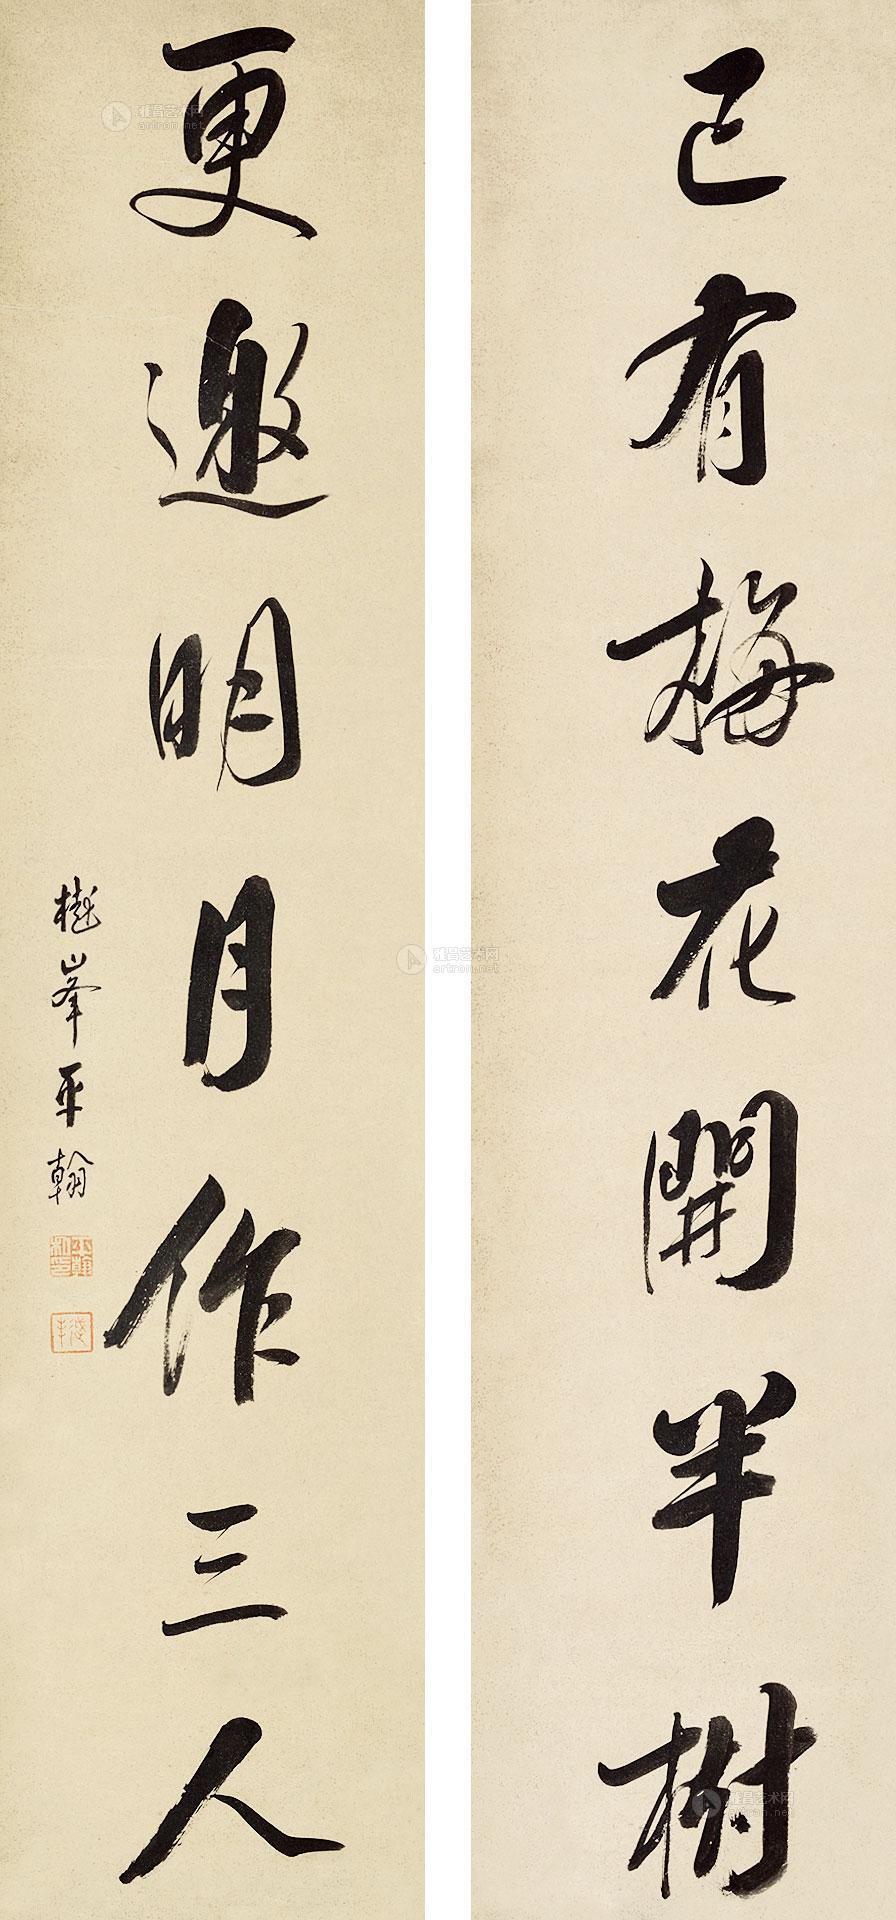 已有梅花開半樹
更邀明月作三人
樾峯平翰
雅昌艺术网
artron.net
雅昌艺术网
artron.net
雅昌艺术网
artron.net